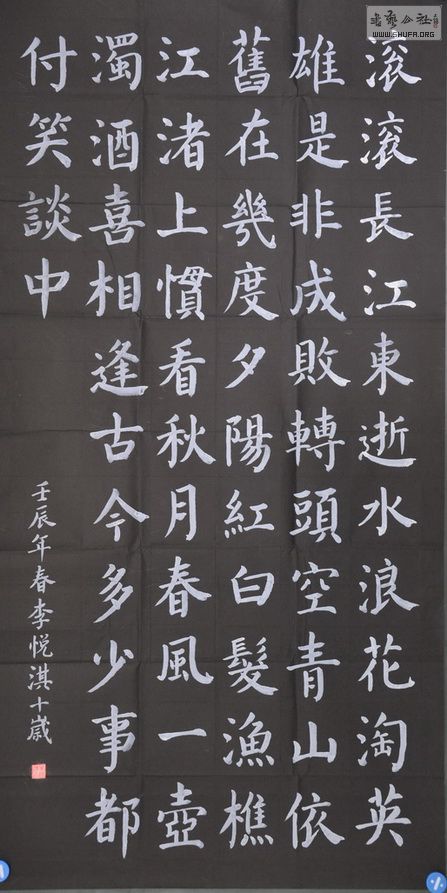 滚滚長江東逝水浪花淘英
雄是非成敗轉頭空青山依
舊在幾度夕陽紅白髮漁樵
江渚上慣看秋月春風一壺
濁酒喜相逢古今多少事都
付笑談中
壬辰年春李悦淇十歲
書藝公社
WWW.SHUFA.ORG